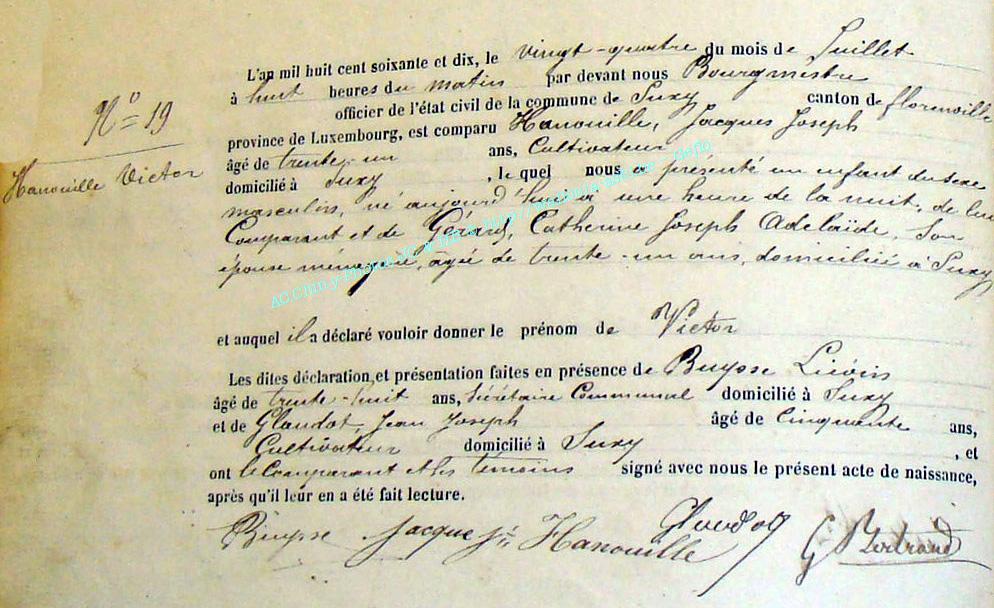 L'an mil huit cent soixante et dix, le vingt-quatre du mois de Juillet
à huit heures du matin par devant nous Bourgmestre
officier de l'état civil de la commune de Suxy canton de florenville
N° 19
province de Luxembourg, est comparu Hanouille, Jacques Joseph
âgé de trente-un ans, Cultivateur
Hanouille Victor
domicilié à Suxy, le quel nous a présenté un enfant du sexe
masculin, né aujourd'hui à une heure de la nuit, de lui
Comparant et de Gérard, Catherine Joseph Adelaïde, son
épouse ménagère, âgée de trente-un ans, domiciliée à Suxy
et auquel il a déclaré vouloir donner le prénom de Victor
Les dites déclaration et présentation faites en présence de Buysse Liévin
âgé de trente-huit ans, Sécrétaire Communal domicilié à Suxy
et de Glaudot, Jean Joseph âgé de Cinquante ans,
Cultivateur domicilié à Suxy, et
ont le Comparant et les témoins signé avec nous le présent acte de naissance,
après qu'il leur en a été fait lecture.
Buysse Jacque Jh Hanouille Glaudot G Bertrand